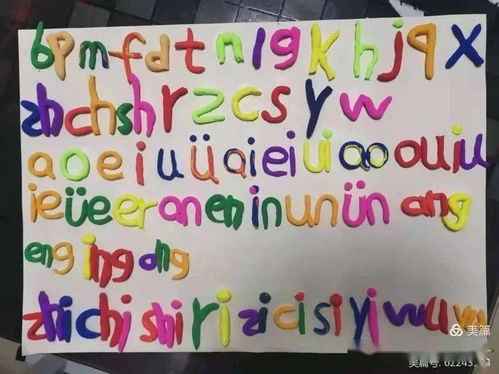 b p m f d t n l g k h j q x
zh ch sh r z c s y w
a o e i u ü ai ei ui ao ou iu
ie üe er an en in un ün ang
eng ing ong
zhi chi shi ri zi ci si yi wu
美篇